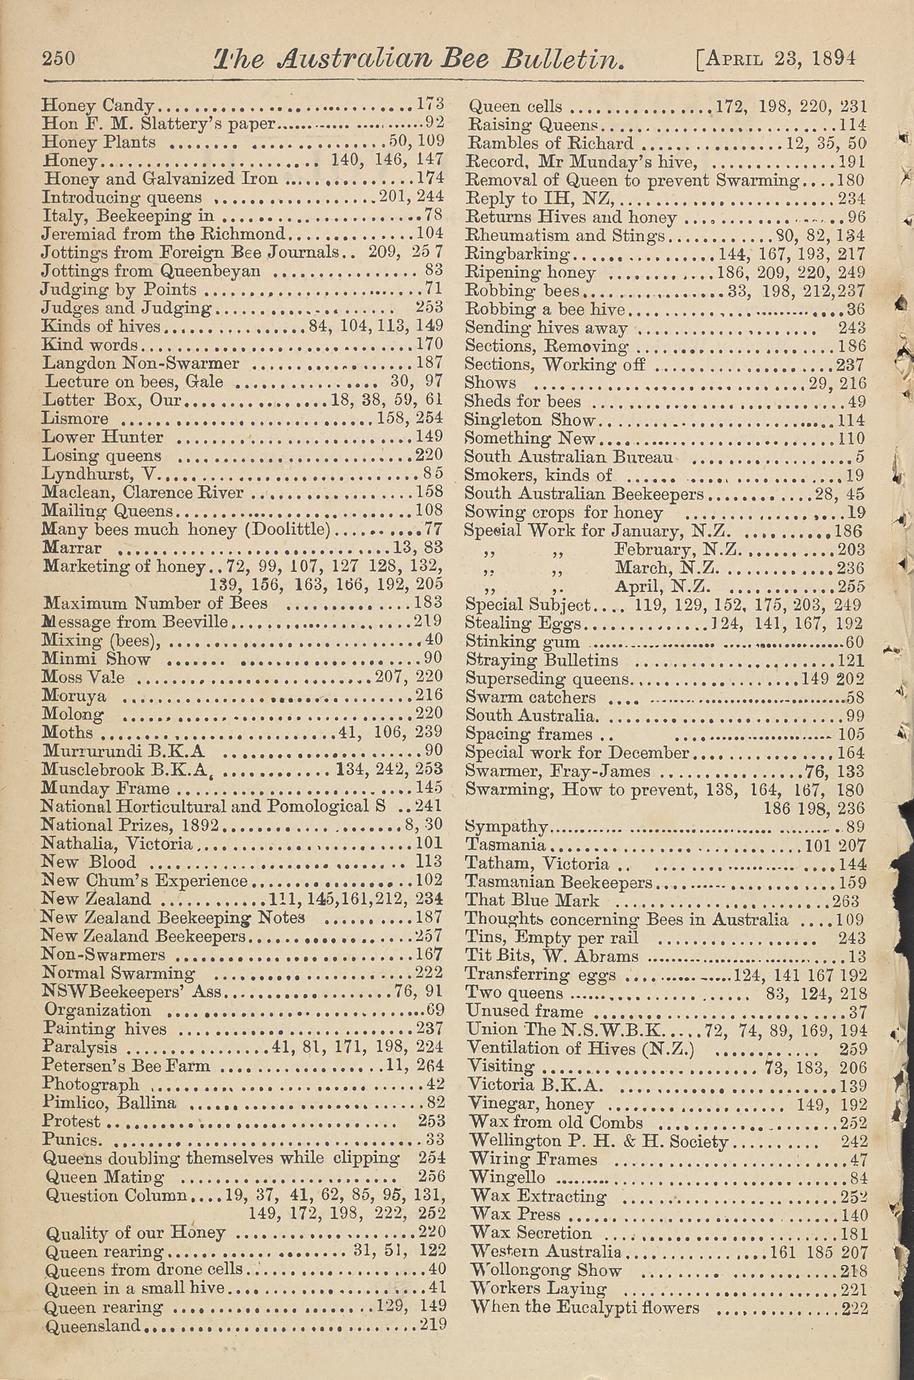 250 The Australian Bee Bulletin. [APRIL 23, 1894
Honey Candy 173
Hon F. M. Slattery's paper 92
Honey Plants 50, 109
Honey 140, 146, 147
Honey and Galvanized Iron 174
Introducing queens 201, 244
Italy, Beekeeping in 78
Jeremiad from the Richmond 104
Jottings from Foreign Bee Journals 209, 25 7
Jottings from Queenbeyan 83
Judging by Points 71
Judges and Judging 253
Kinds of hives 84, 104, 113, 149
Kind words 170
Langdon Non-Swarmer 187
Lecture on bees, Gale 30, 97
Letter Box, Our 18, 38, 59, 61
Lismore 158, 254
Lower Hunter 149
Losing queens 220
Lyndhurst, V. 85
Maclean, Clarence River 158
Mailing Queens 108
Many bees much honey (Doolittle) 77
Marrar 13, 83
Marketing of honey 72, 99, 107, 127 128, 132,
139, 156, 163, 166, 192, 205
Maximum Number of Bees 183
Message from Beeville 219
Mixing (bees), 40
Minmi Show 90
Moss Vale 207, 220
Moruya 216
Molong 220
Moths 41, 106, 239
Murrurundi B.K.A 90
Musclebrook B.K.A, 134, 242, 253
Munday Frame 145
National Horticultural and Pomological S 241
National Prizes, 1892 8, 30
Nathalia, Victoria 101
New Blood 113
New Chum's Experience 102
New Zealand 111, 145,161,212, 234
New Zealand Beekeeping Notes 187
New Zealand Beekeepers 257
Non-Swarmers 167
Normal Swarming 222
NSWBeekeepers' Ass 76, 91
Organization 69
Painting hives 237
Paralysis 41, 81, 171, 198, 224
Petersen's Bee Farm 11, 264
Photograph 42
Pimlico, Ballina 82
Protest 253
Punics. 33
Queens doubling themselves while clipping 254
Queen Mating 256
Question Column 19, 37, 41, 62, 85, 95, 131,
149, 172, 198, 222, 252
Quality of our Honey 220
Queen rearing 31, 51, 122
Queens from drone cells 40
Queen in a small hive 41
Queen rearing 129, 149
Queensland 219
Queen cells 172, 198, 220, 231
Raising Queens 114
Rambles of Richard 12, 35, 50
Record, Mr Munday's hive, 191
Removal of Queen to prevent Swarming 180
Reply to IH, NZ, 234
Returns Hives and honey 96
Rheumatism and Stings 80, 82, 134
Ringbarking 144, 167, 193, 217
Ripening honey 186, 209, 220, 249
Robbing bees 33, 198, 212,237
Robbing a bee hive 36
Sending hives away 243
Sections, Removing 186
Sections, Working off 237
Shows 29, 216
Sheds for bees 49
Singleton Show 114
Something New 110
South Australian Bureau 5
Smokers, kinds of 19
South Australian Beekeepers 28, 45
Sowing crops for honey 19
Special Work for January, N.Z. 186
,, ,, February, N.Z. 203
,, ,, March, N.Z. 236
,, ,, April, N.Z. 255
Special Subject 119, 129, 152, 175, 203, 249
Stealing Eggs 124, 141, 167, 192
Stinking gum 60
Straying Bulletins 121
Superseding queens 149 202
Swarm catchers 58
South Australia. 99
Spacing frames 105
Special work for December 164
Swarmer, Fray-James 76, 133
Swarming, How to prevent, 138, 164, 167, 180
186 198, 236
Sympathy 89
Tasmania 101 207
Tatham, Victoria 144
Tasmanian Beekeepers 159
That Blue Mark 263
Thoughts concerning Bees in Australia 109
Tins, Empty per rail 243
Tit Bits, W. Abrams 13
Transferring eggs 124, 141 167 192
Two queens 83, 124, 218
Unused frame 37
Union The N.S.W.B.K. 72, 74, 89, 169, 194
Ventilation of Hives (N.Z.) 259
Visiting 73, 183, 206
Victoria B.K.A. 139
Vinegar, honey 149, 192
Wax from old Combs 252
Wellington P. H. & H. Society 242
Wiring Frames 47
Wingello 84
Wax Extracting 252
Wax Press 140
Wax Secretion 181
Western Australia 161 185 207
Wollongong Show 218
Workers Laying 221
When the Eucalypti flowers 222